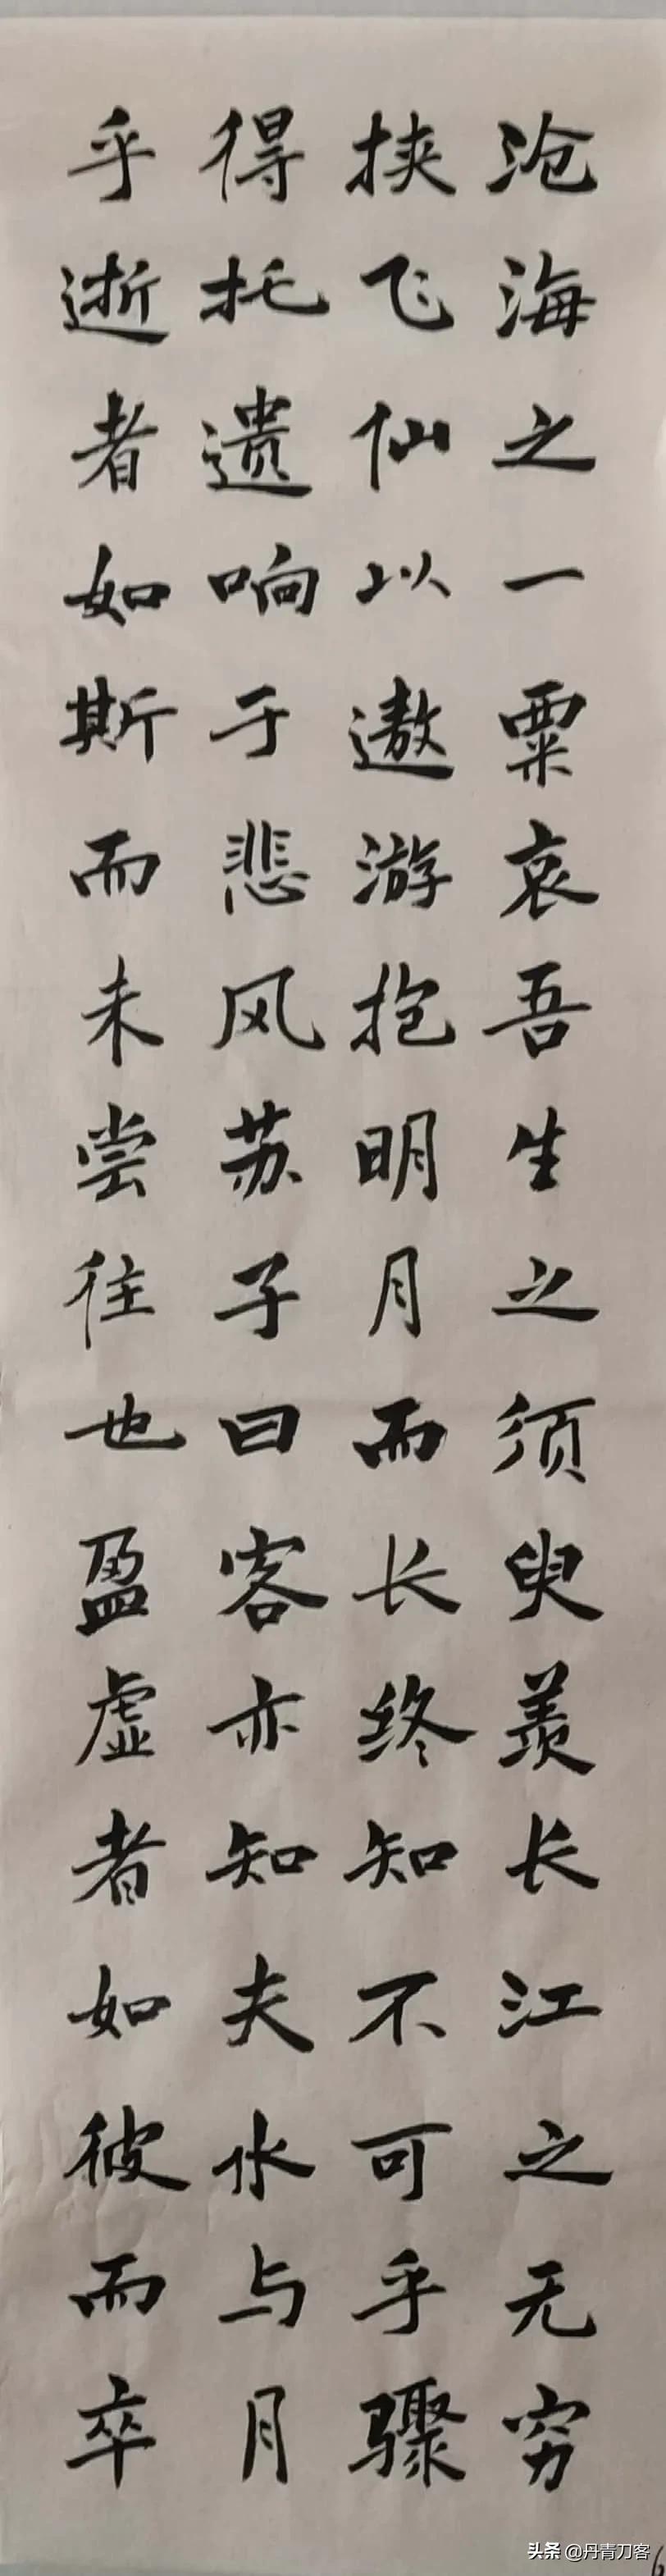 沧海之一粟哀吾生之须臾羡长江之无穷
挟飞仙以遨游抱明月而长终知不可乎骤
得托遗响于悲风苏子曰客亦知夫水与月
乎逝者如斯而未尝往也盈虚者如彼而卒
头条 @丹青刀客